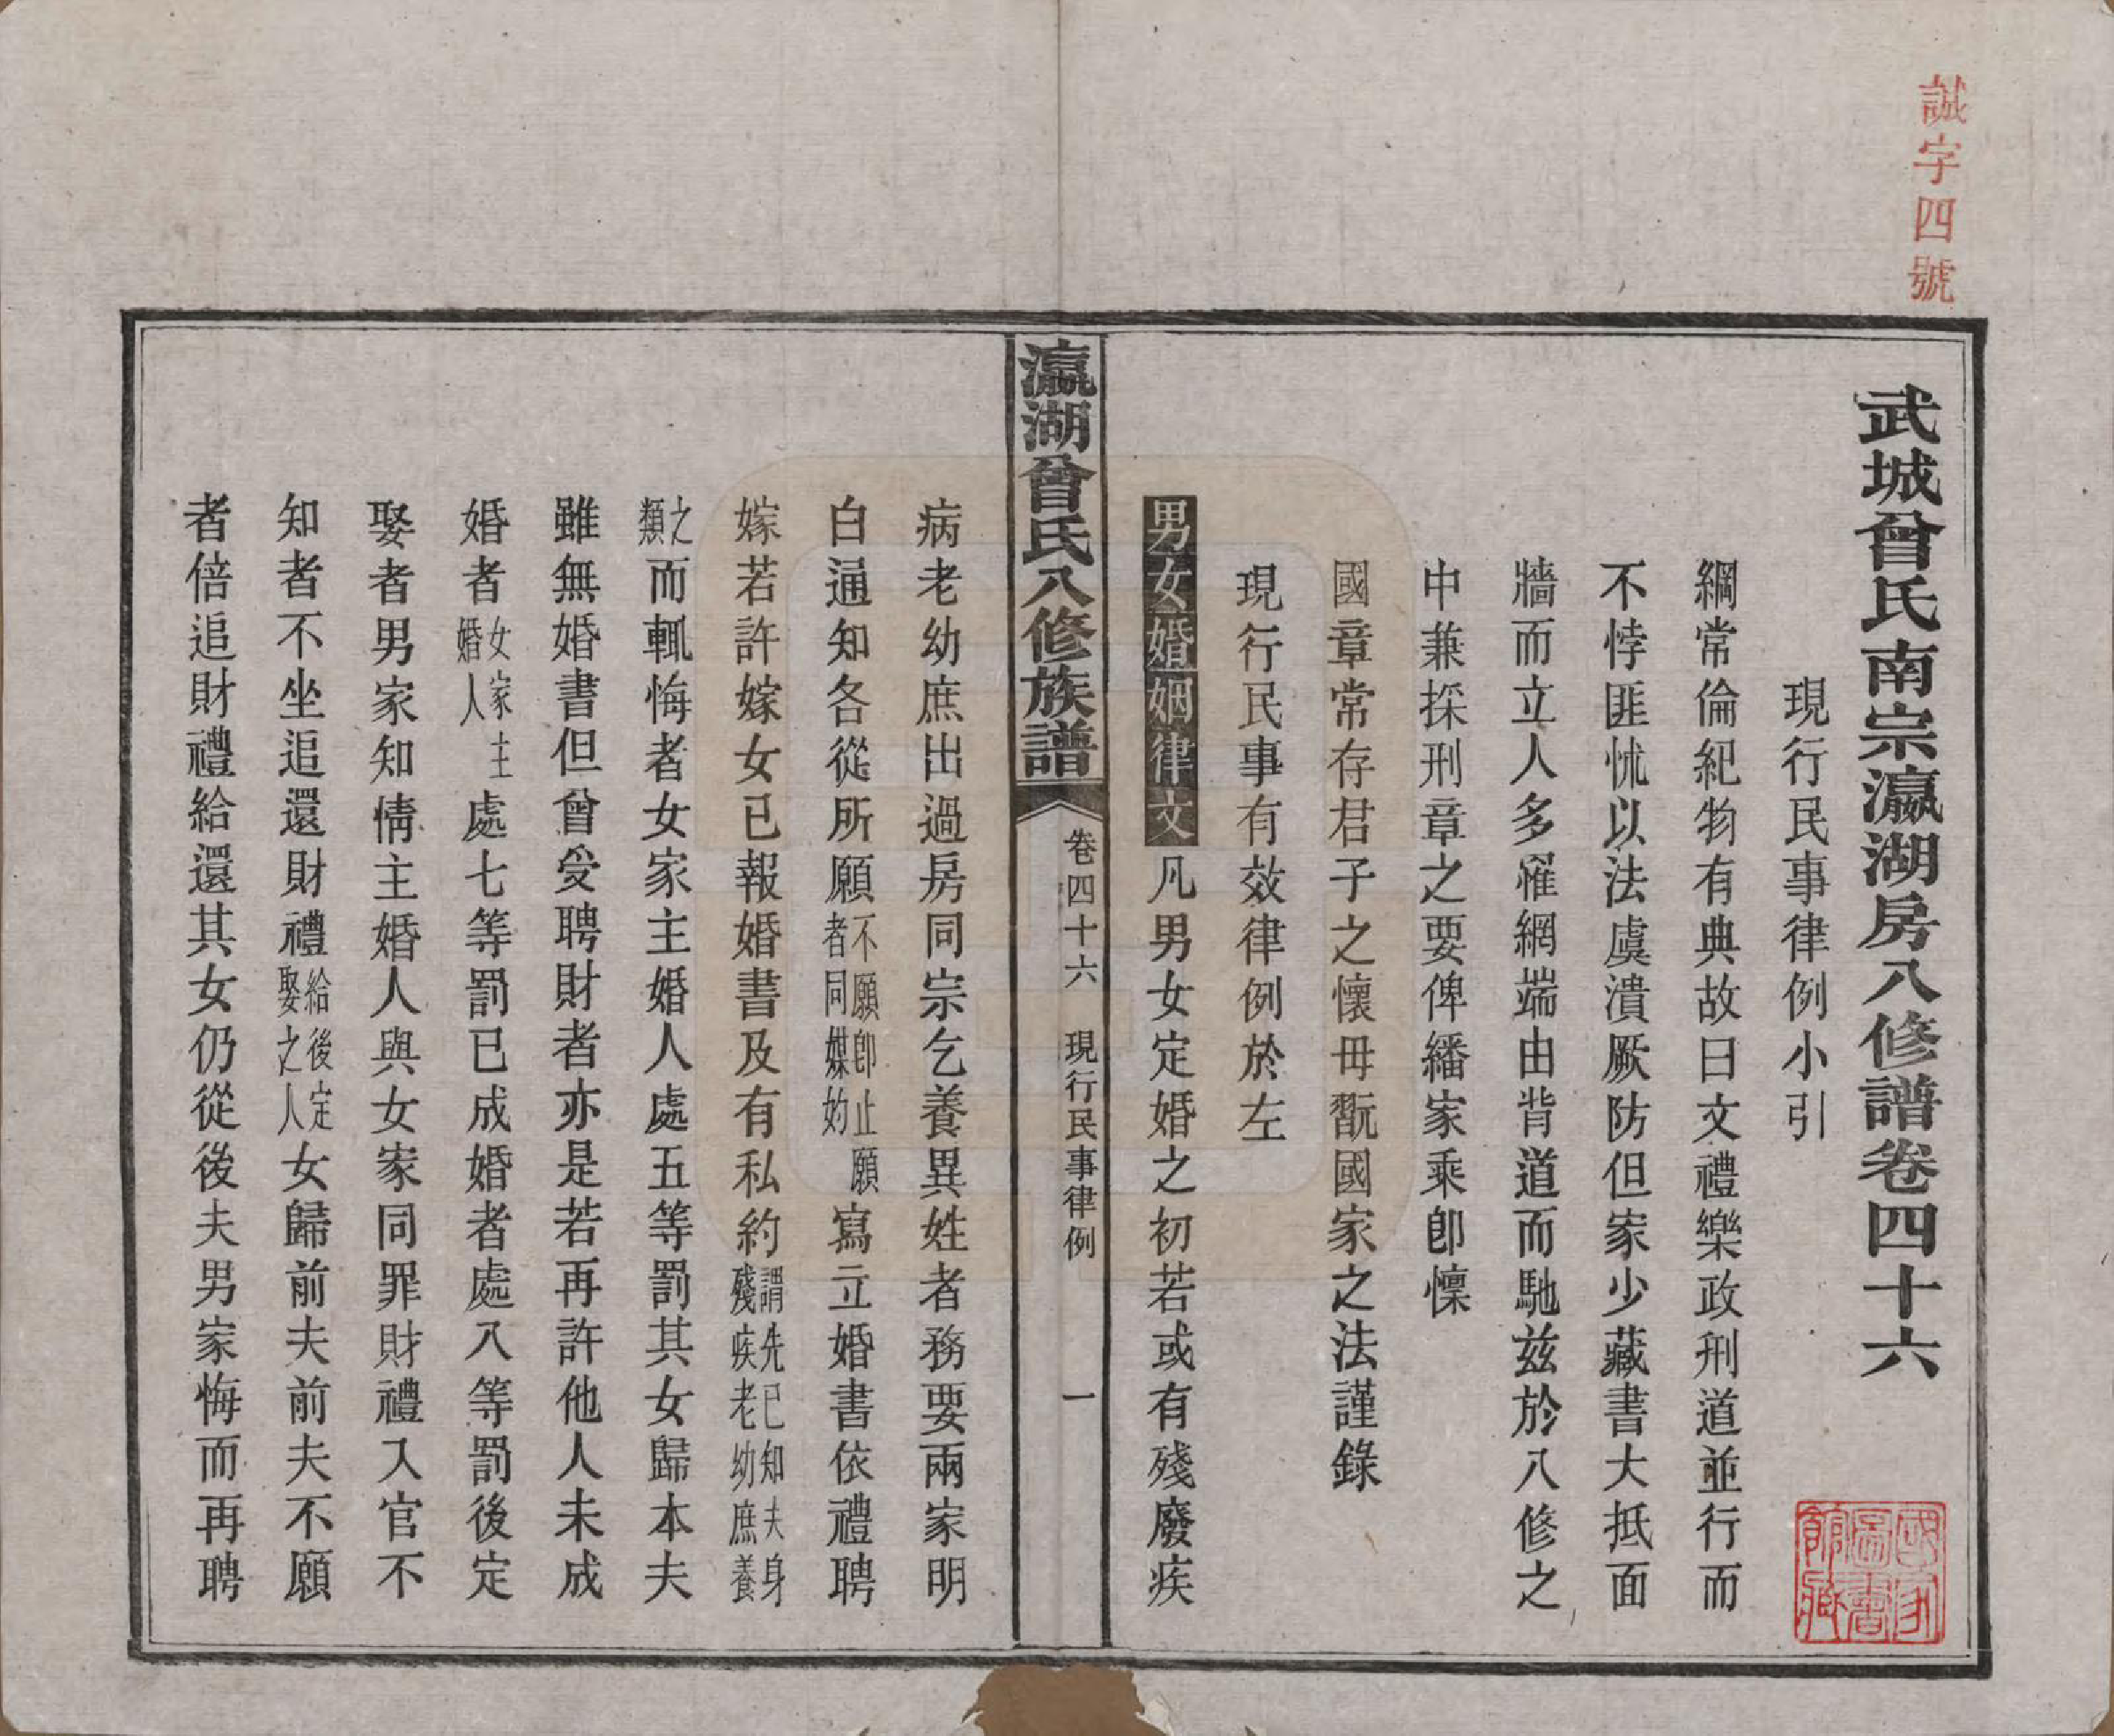 誠字四號
武城曾氏南宗瀛湖房八修譜卷四十六
現行民事律例小引
綱常倫紀物有典故曰文禮樂政刑道並行而
不悖匪怵以法虞潰厥防但家少藏書大抵面
牆而立人多罹網端由背道而馳茲於八修之
中兼採刑章之要俾繙家乘卽懍
國章常存君子之懷毋翫國家之法謹錄
現行民事有效律例於左
男女婚姻律文凡男女定婚之初若或有殘廢疾
瀛湖曾氏八修族譜 卷四十六 現行民事律例 一
病老幼庶出過房同宗乞養異姓者務要兩家明
白通知各從所願不願卽止願者同媒妁寫立婚書依禮聘
嫁若許嫁女已報婚書及有私約謂先已知夫身殘疾老幼庶養
之類而輒悔者女家主婚人處五等罰其女歸本夫
雖無婚書但曾受聘財者亦是若再許他人未成
婚者女家主婚人處七等罰已成婚者處八等罰後定
娶者男家知情主婚人與女家同罪財禮入官不
知者不坐追還財禮給後定娶之人女歸前夫前夫不願
者倍追財禮給還其女仍從後夫男家悔而再聘
國家圖書館藏